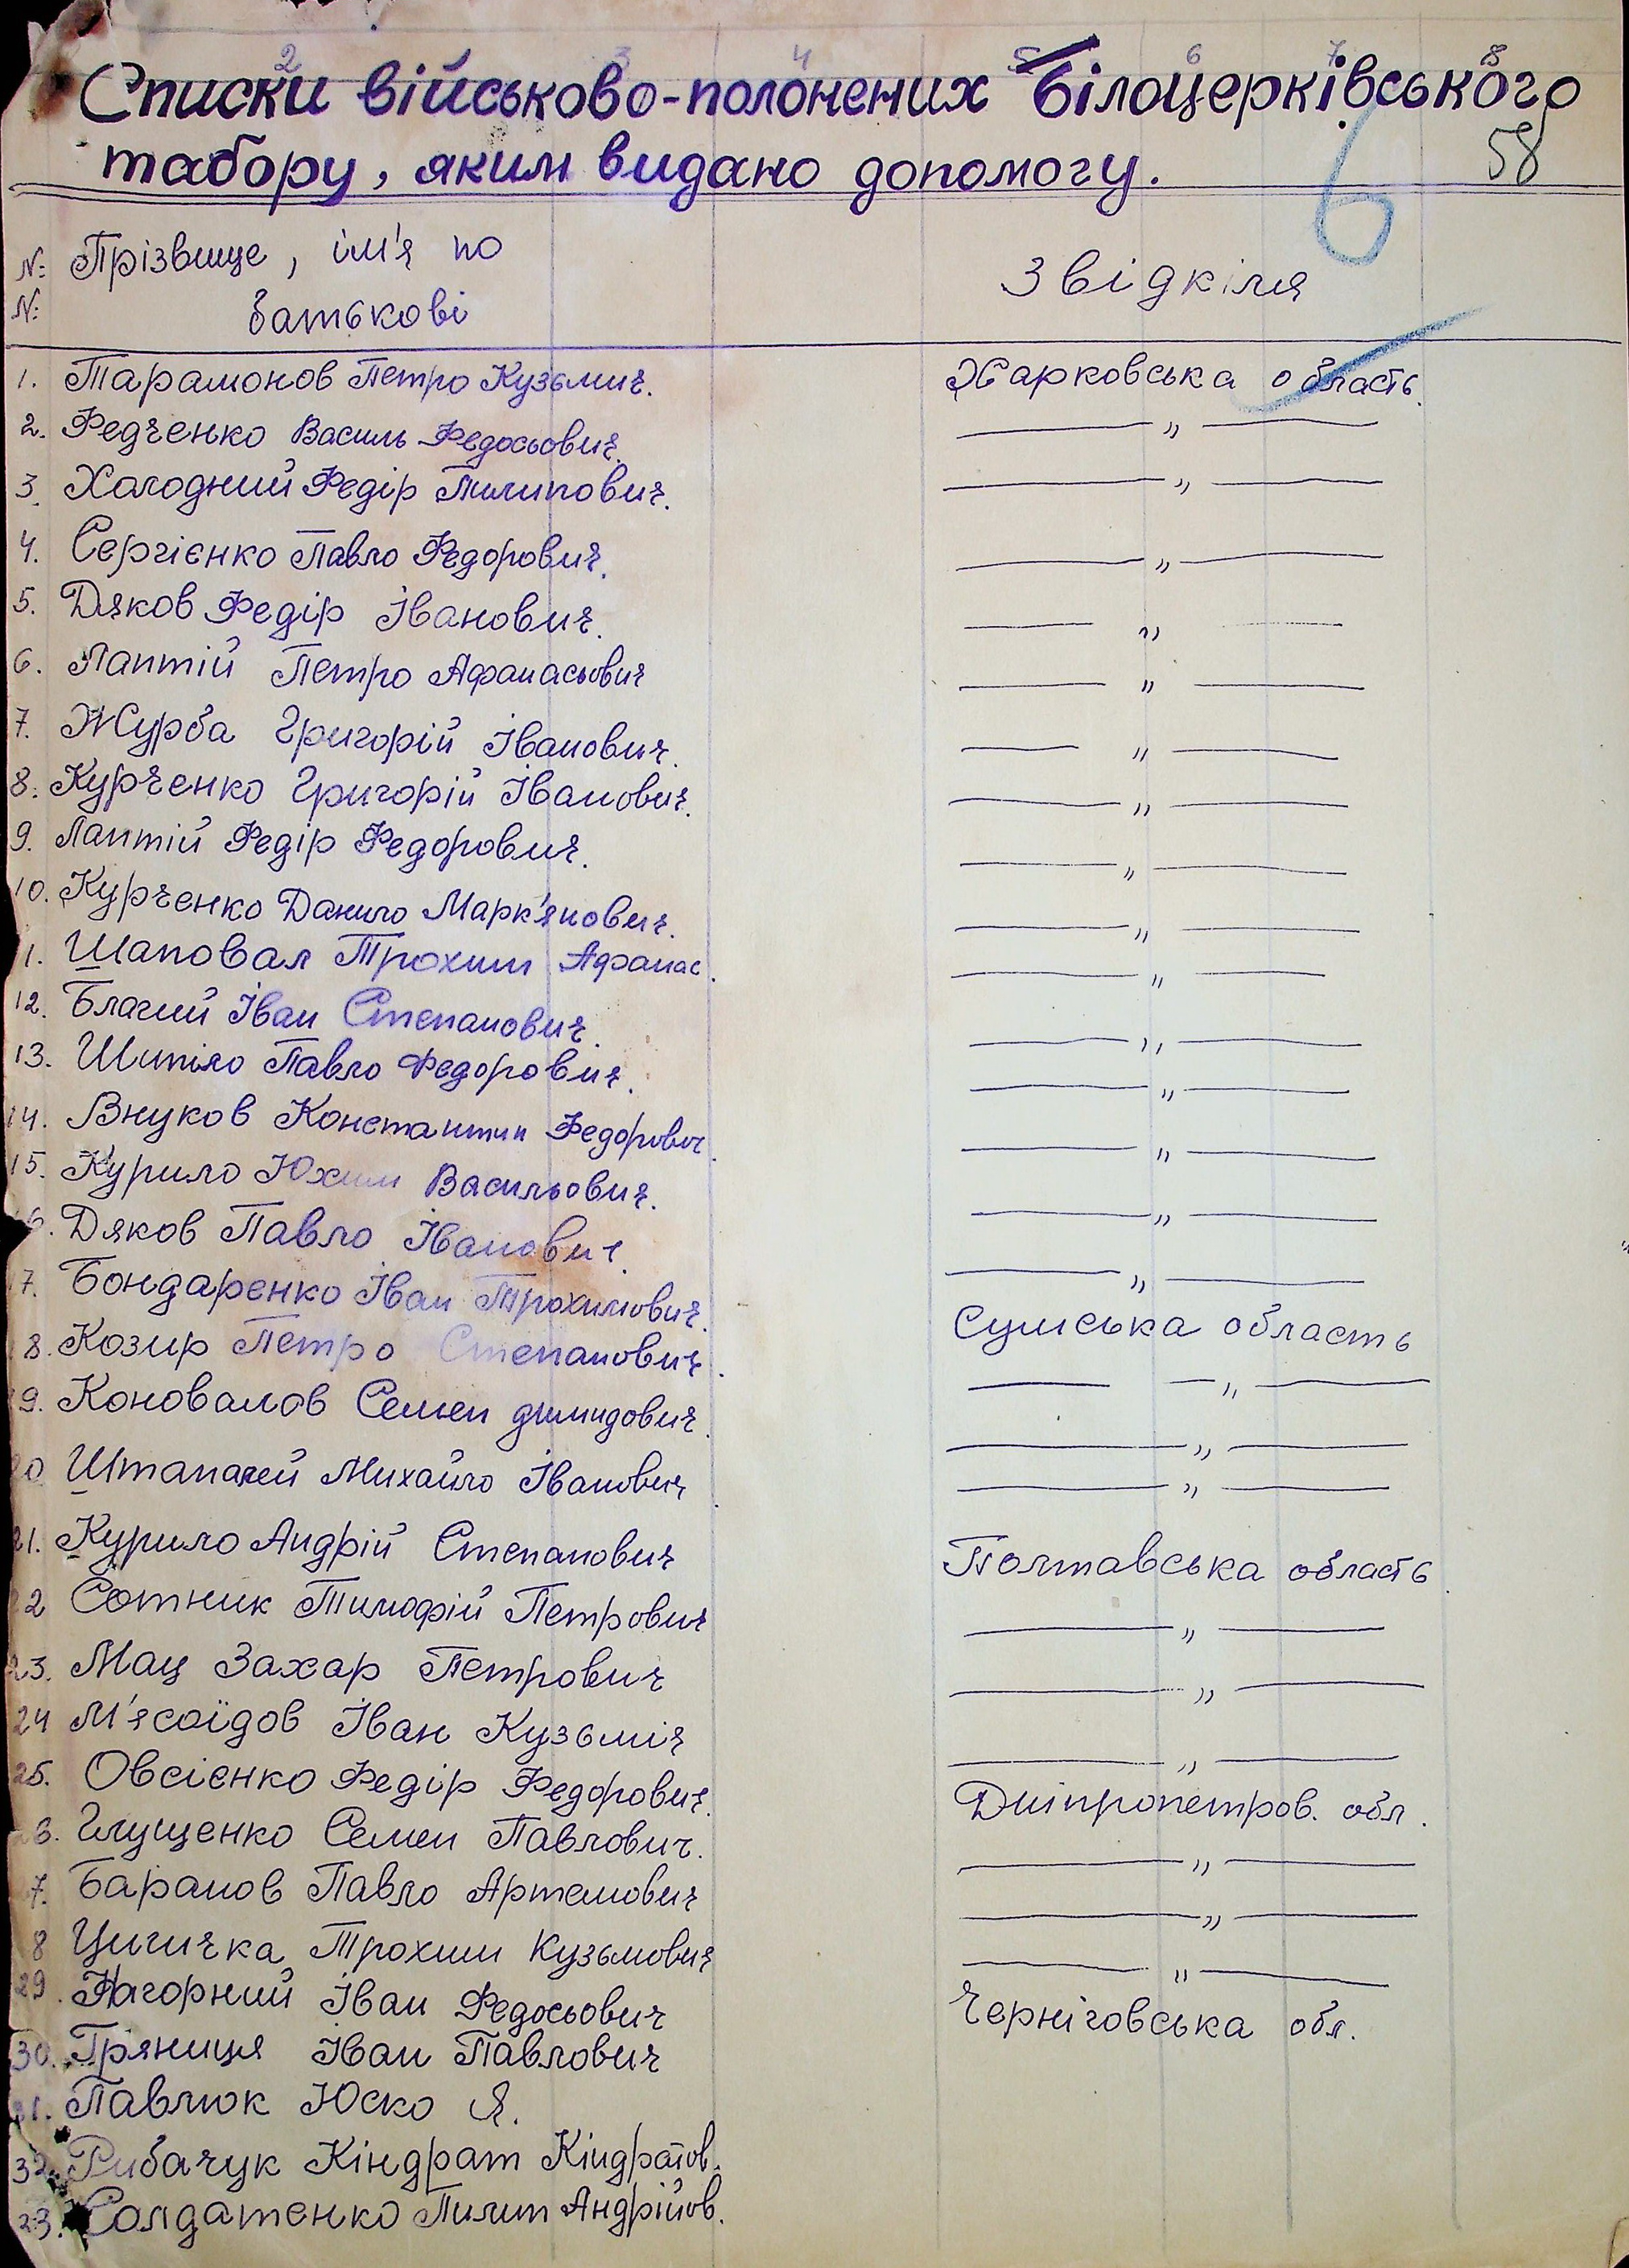 2 3 4 5 6 7 8
Списки військово-полонених Білоцерківського
табору, яким видано допомогу.
6 58
№ Прізвище, ім'я по
№ батькові
Звідкіля
1. Парамонов Петро Кузьмич. Харковська область.
2. Федченко Василь Федосьович. — " —
3. Холодний Федір Пилипович. — " —
4. Сергієнко Павло Федорович. — " —
5. Дяков Федір Іванович. — " —
6. Лаптій Петро Афанасьович — " —
7. Журба Григорій Іванович. — " —
8. Курченко Григорій Іванович. — " —
9. Лаптій Федір Федорович. — " —
10. Курченко Данило Марк'янович. — " —
1. Шаповал Трохим Афанас. — " —
12. Благий Іван Степанович. — " —
13. Шипіло Павло Федорович. — " —
14. Внуков Константин Федорович. — " —
15. Курило Юхим Васильович. — " —
6. Дяков Павло Іванович. — " —
7. Бондаренко Іван Трохимович. Сумська область
8. Козир Петро Степанович. — " —
9. Коновалов Семен димидович. — " —
20 Михайло Іванович — " —
21. Курило Андрій Степанович Полтавська область.
22 Сотник Тимофій Петрович — " —
23. Мац Захар Петрович — " —
24 М'ясоїдов Іван Кузьміч — " —
25. Овсієнко Федір Федорович. Дніпропетров. обл.
6. Глущенко Семен Павлович. — " —
7. Баранов Павло Артемович — " —
8 Цигичка Трохим Кузьмович — " —
29. Нагорний Іван Федосьович Черніговська обл.
30. Гряниця Іван Павлович
31. Павлюк Юско Я.
32. Рибачук Кіндрат Кіндратов.
33. Солдатенко Пилип Андрійов.